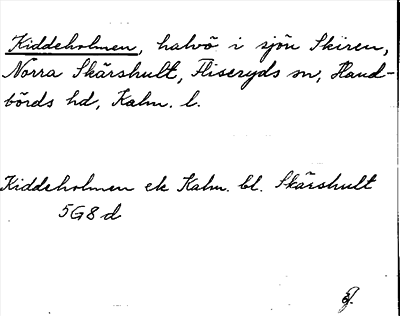 Kiddeholmen, halvö i sjön Skiren,
Norra Skärshult, Fliseryds sn, Hand-
börds hd, Kalm. l.
Kiddeholmen ek Kalm. bl. Skärshult
5G8d